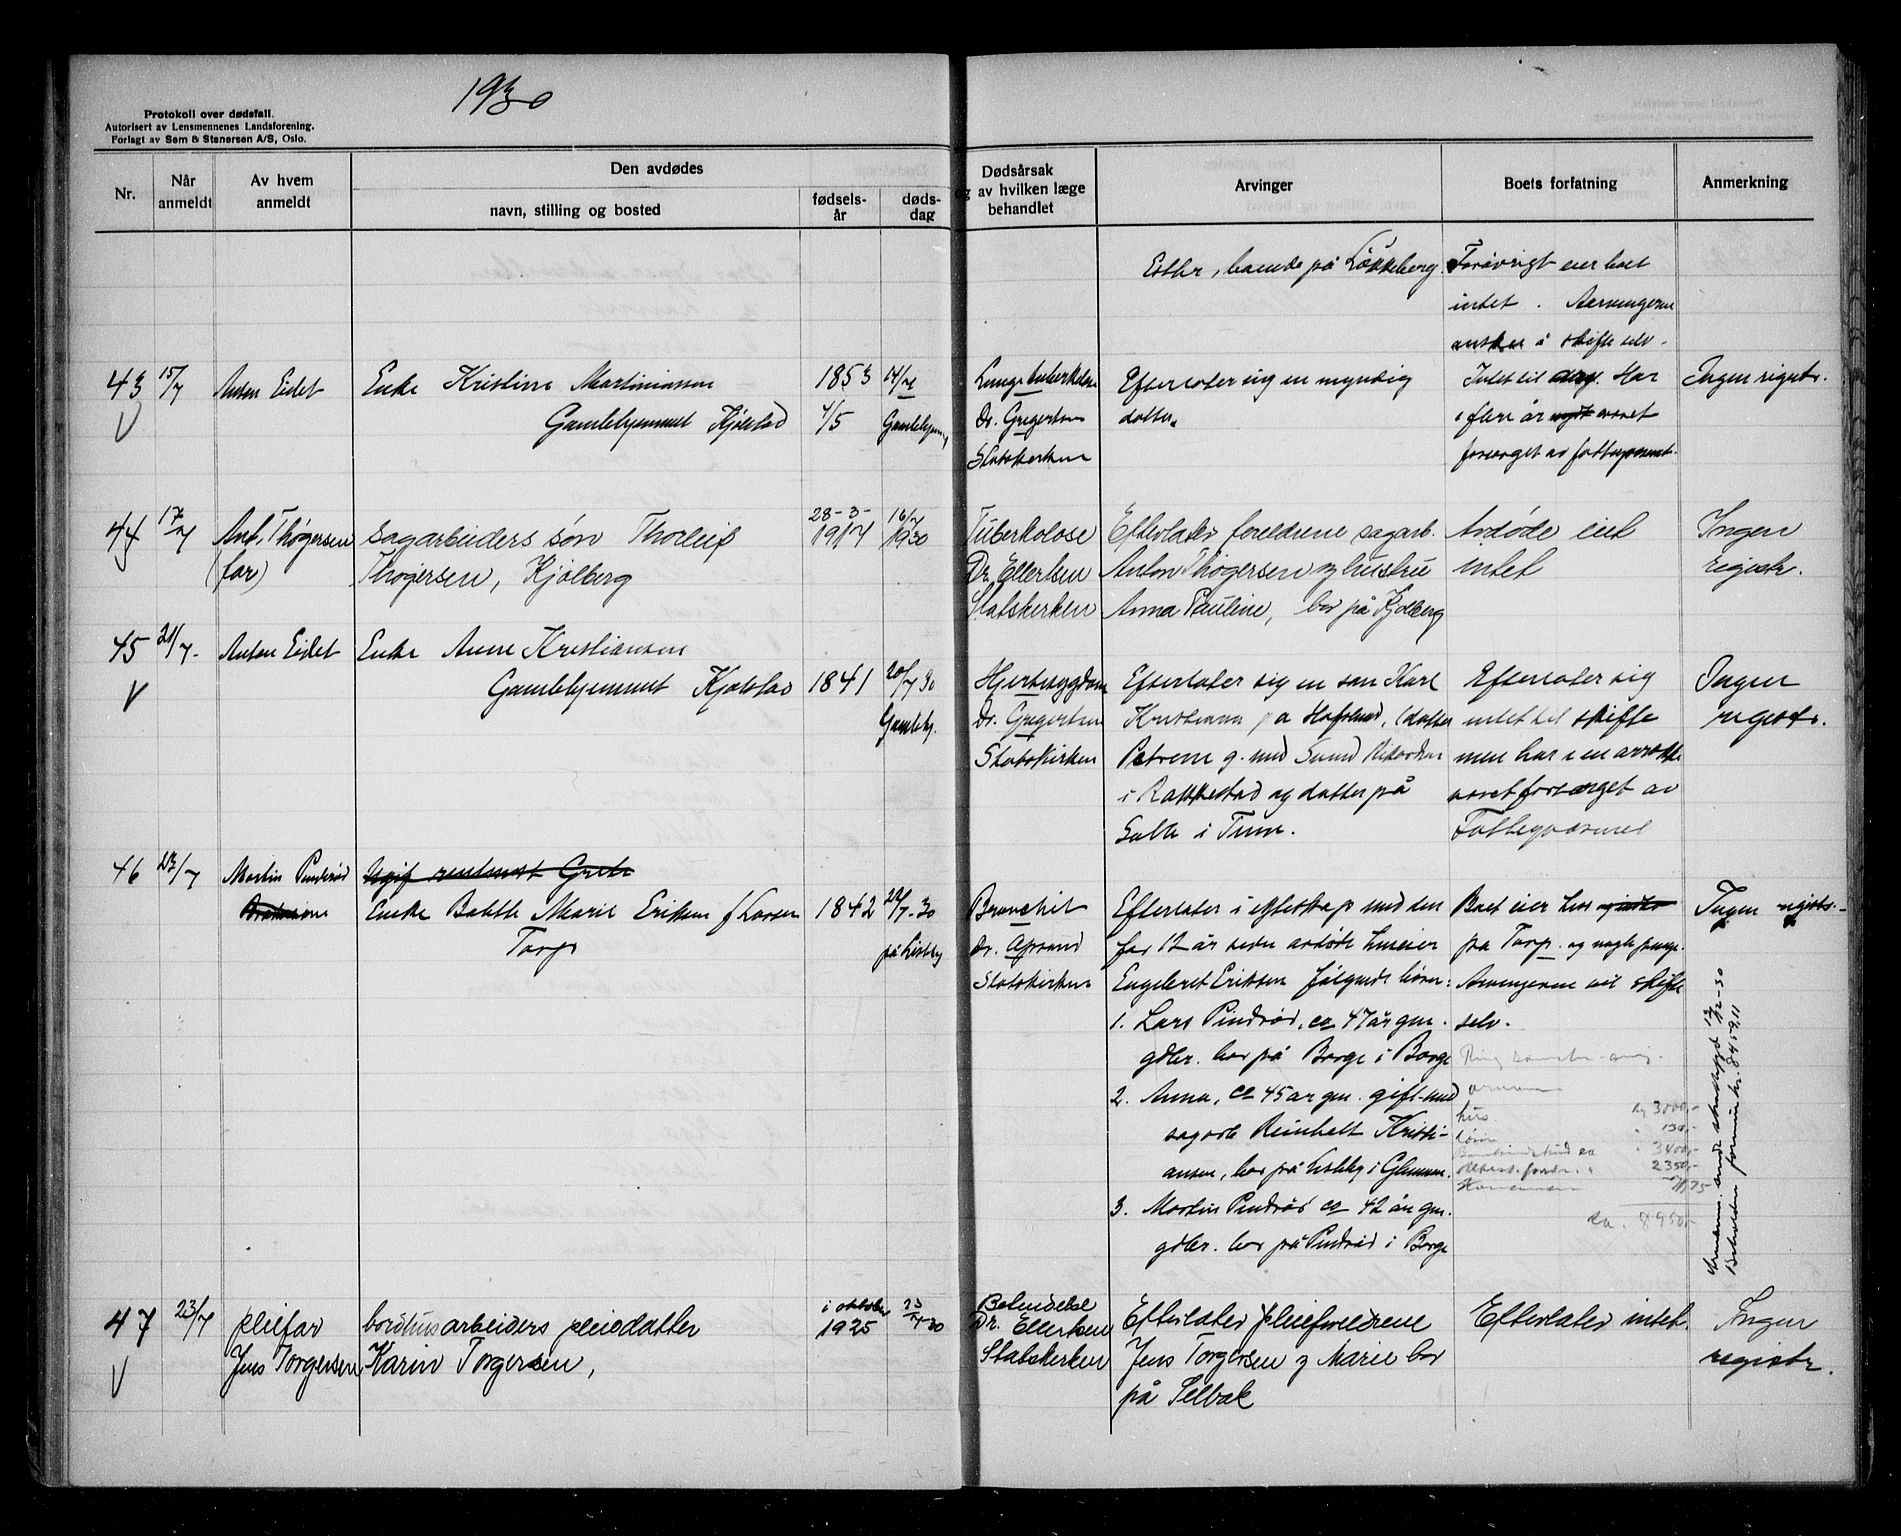 1930
Protokoll over dødsfall.
Autorisert av Lensmennenes Landsforening.
Forlagt av Sem & Stenersen A/S, Oslo.
Nr.
Når anmeldt
Av hvem anmeldt
Den avdødes
navn, stilling og bosted
fødsels-år
døds-dag
Dødsårsak
og av hvilken læge
behandlet
Arvinger
Boets forfatning
Anmerkning
Esther, boende på Løkkeberg.
Forøvrigt eier boet
intet. Arvingerne
ønsker å skifte selv.
43 15/7 Anton Eidet Enke Kristine Martiniussen 1853 14/7
Gamlehjemmet Kjølstad 4/5 Gamlehjem
V
Lungetuberkulose
Dr. Gregertsen
Statskirken
Efterlater sig en myndig
datter.
Intet til arv. Har
i flere år nydt været
forsørget av fattigvæsenet.
Ingen registr.
44 17/7 Ant. Thøgersen sagarbeiders søn Thorleif 28-3-1917 16/7 1930
(far) Thøgersen, Kjølberg
Tuberkolose
Dr. Ellertsen
Statskirken
Efterlater foreldrene sagarb.
Anton Thøgersen og hustru
Anna Pauline, bor på Kjølberg
Avdøde eiet
intet
Ingen
registr.
45 21/7. Anton Eidet Enke Anne Kristiansen
V
Gamlehjemmet Kjølstad 1841 20/7 30
Gamlehj.
Hjertesygdom
Dr. Gregertsen
Statskirken
Efterlater sig en søn Karl
Kristiansen på Hafslund, 1 datter
Petrine g. med
i Rakkestad og datter på
i Tune.
Efterlater sig
intet til skifte
men har i en årrekke
været forsørget av
Fattigvæsenet
Ingen
registr.
46 23/7 Martin Pindsrød
Enke Bolette Marie Eriksen f. Larsen 1842 22/7-30
Torp på Lisleby
Bronchit
Dr.
Statskirken
Efterlater i ekteskap med den
for 12 år siden avdøde huseier
Engebret Eriksen følgende børn:
1. Lars Pindrød, ca 47 år gm.
gdbr. bor på Borge i Borge
2. Anna, ca 45 år gm. gift med
sagarb. Reinholt Kristi-
ansen, bor på Lisleby i Glemmen.
3. Martin Pindrød ca 42 år gm.
gdbr. bor på Pindrød i Borge
Boet eier hus og intet
på Torp. og nogle penge.
Arvingerne vil skifte
selv.
hus kr 3000,-
130,-
3400,-
2350,-
ca. 8950,-
Ingen registr.
Beholden formue kr. 8459.11
47 23/7 pleiefar bordhusarbeiders pleiedatter i oktober 1925 23/7 30
Jens Torgersen Karin Torgersen,
V
Betendelse
Dr. Ellertsen
Statskirken
Efterlater pleieforeldrene
Jens Torgersen og Marie bor
på Selbak
Efterlater intet.
Ingen
registr.